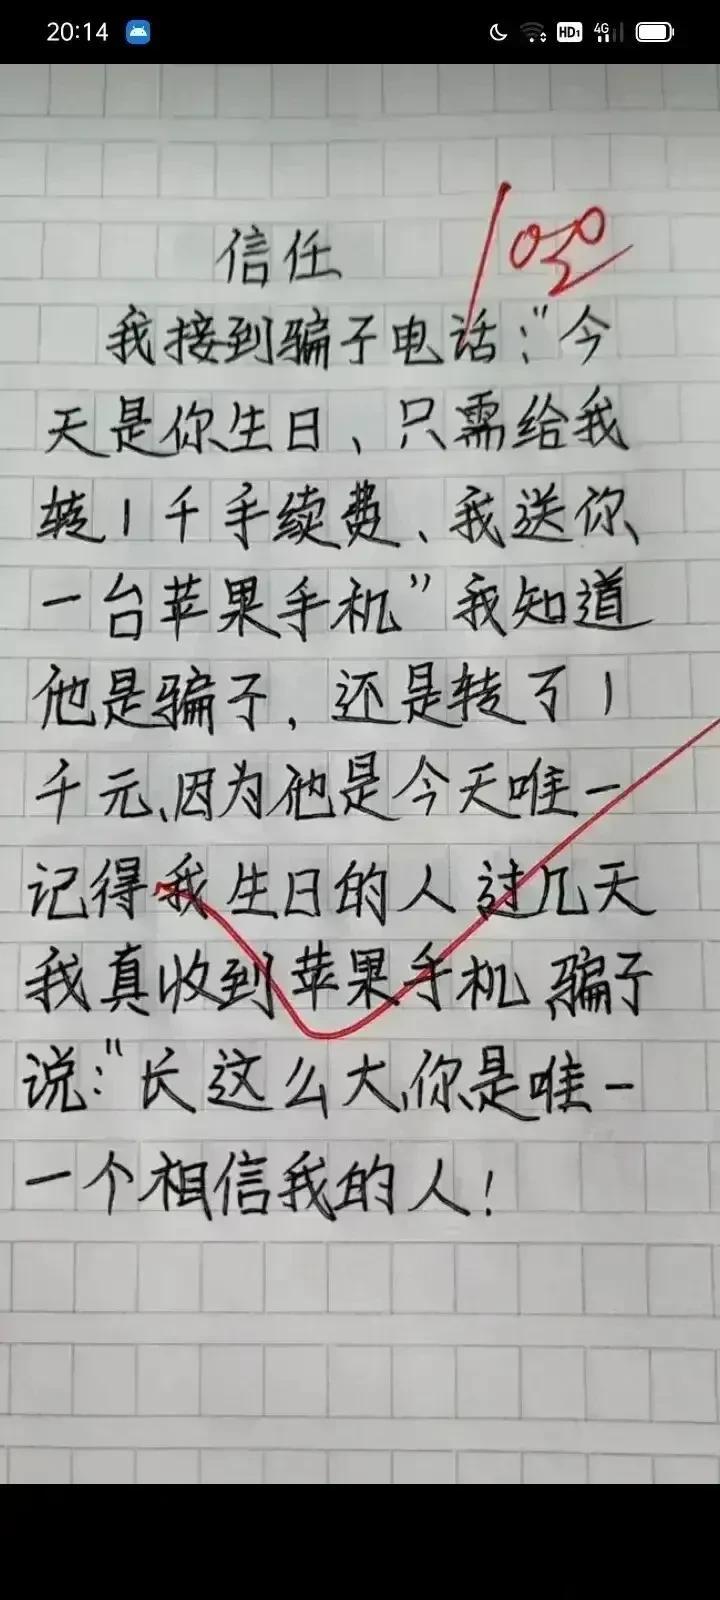 20:14
HD1 4G
信任
100
我接到骗子电话:"今
天是你生日、只需给我
转1千手续费、我送你
一台苹果手机"我知道
他是骗子,还是转了1
千元、因为他是今天唯一
记得我生日的人过几天
我真收到苹果手机、骗子
说:"长这么大、你是唯一
一个相信我的人!